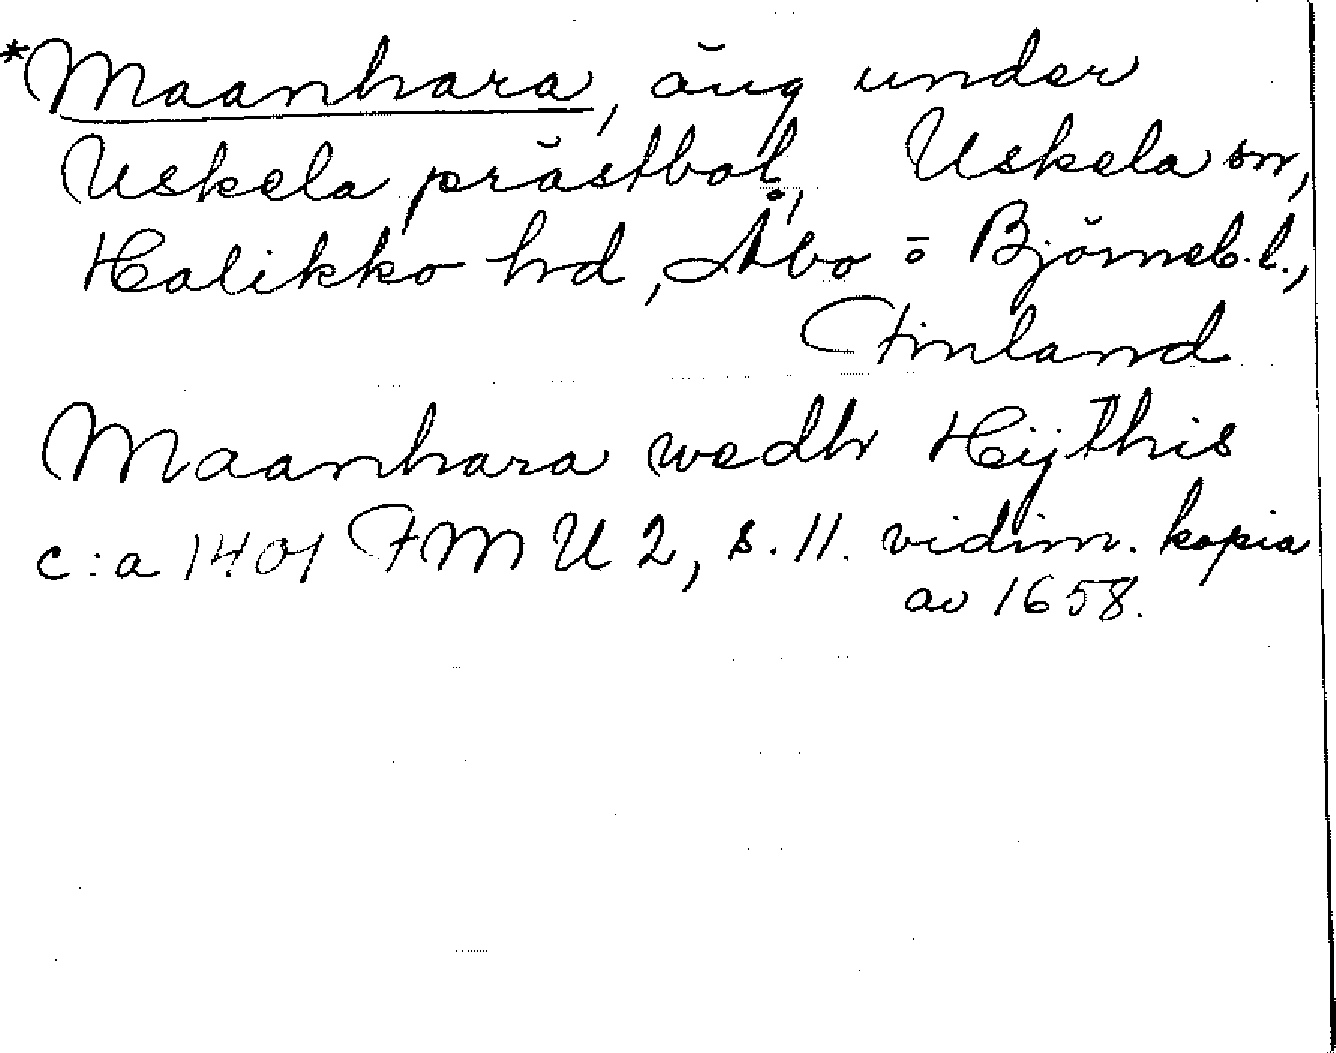 *Maanhara, äng under
Uskela prästbol, Uskela sn,
Halikko hd, Åbo o Björneb. l.,
Finland
Maanhara wedh Hijthis
c:a 1401 FMU 2, s. 11. vidim. kopia
av 1658.